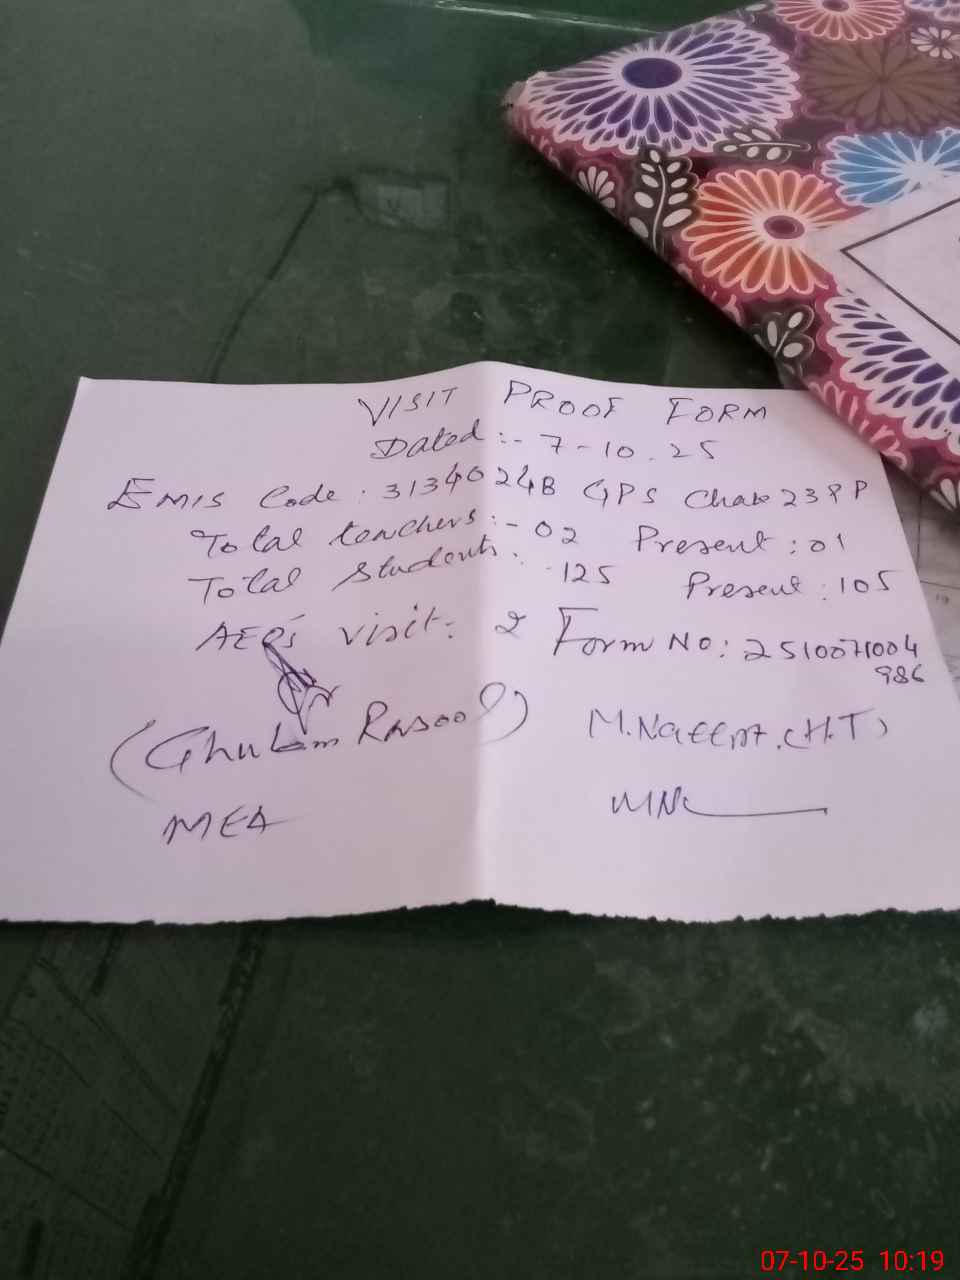 VISIT PROOF FORM
Dated :- 7-10.25
EMIS Code : 31340248 GPS Chak 239P
Total teachers :- 02 Present : 01
Total Students : 125 Present : 105
AEO's visit : 2 Form No : 2510071004
986
(Ghulam Rasool) M.Naeem.(H.T)
MEA
07-10-25 10:19